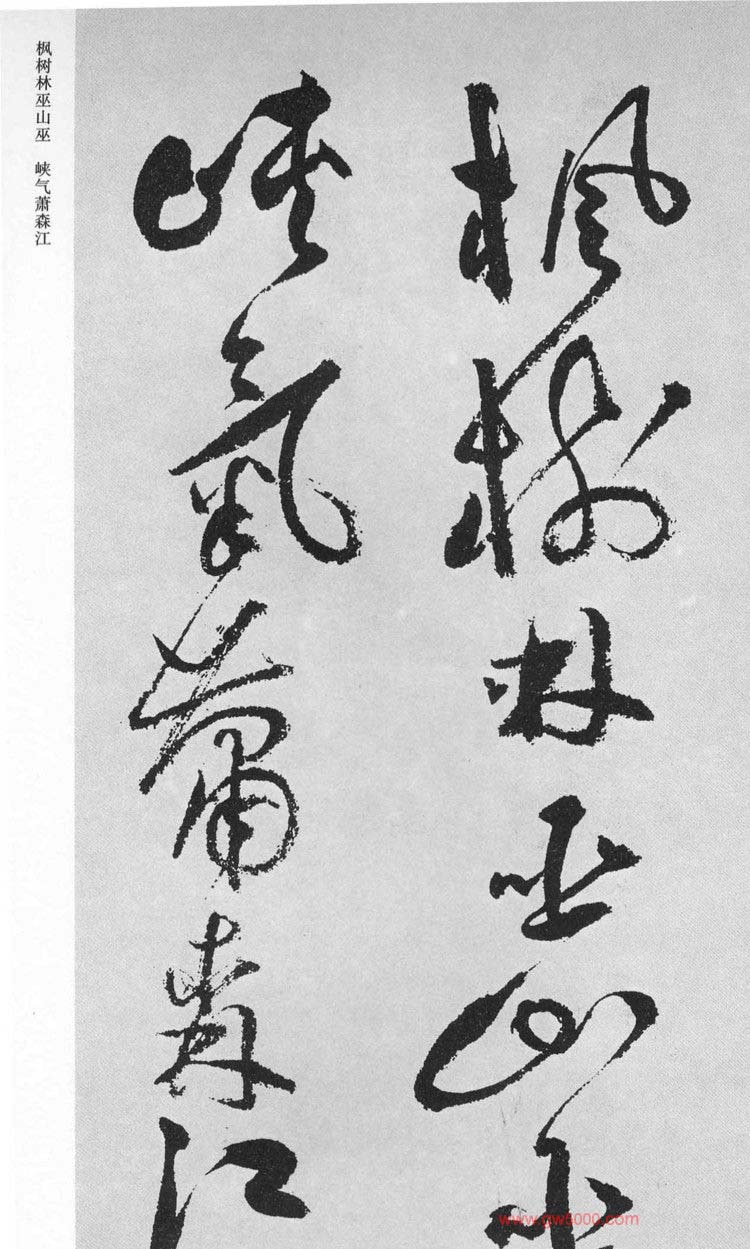 枫树林巫山巫　峡气萧森江
楓樹林巫山巫
峡氣蕭森江
www.gw5000.com